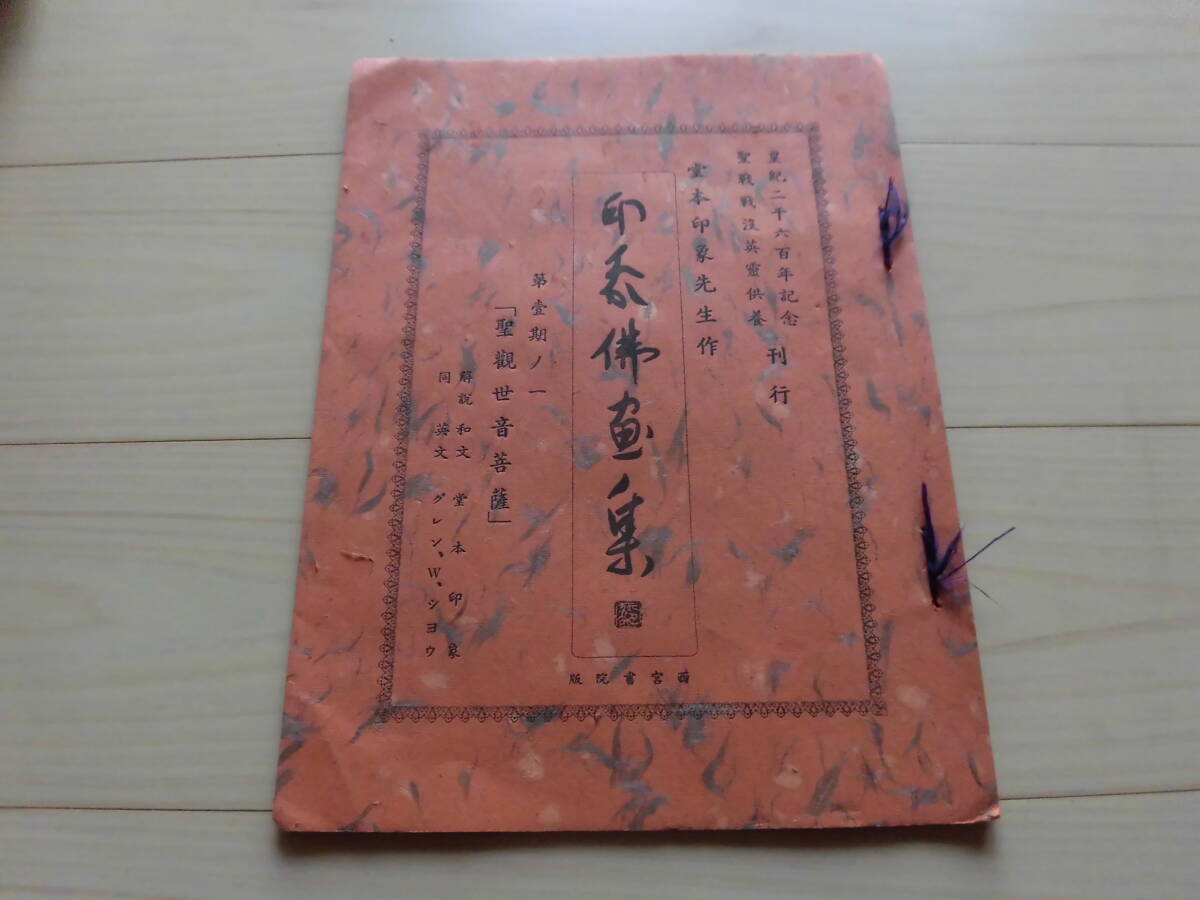 皇紀二千六百年記念
聖戦戦没英霊供養
刊行
堂本印象先生作
印象佛画集
第壹期ノ一
「聖觀世音菩薩」
解説 和文 堂本印象
同 英文 グレン、W、シヨウ
西宮書院版